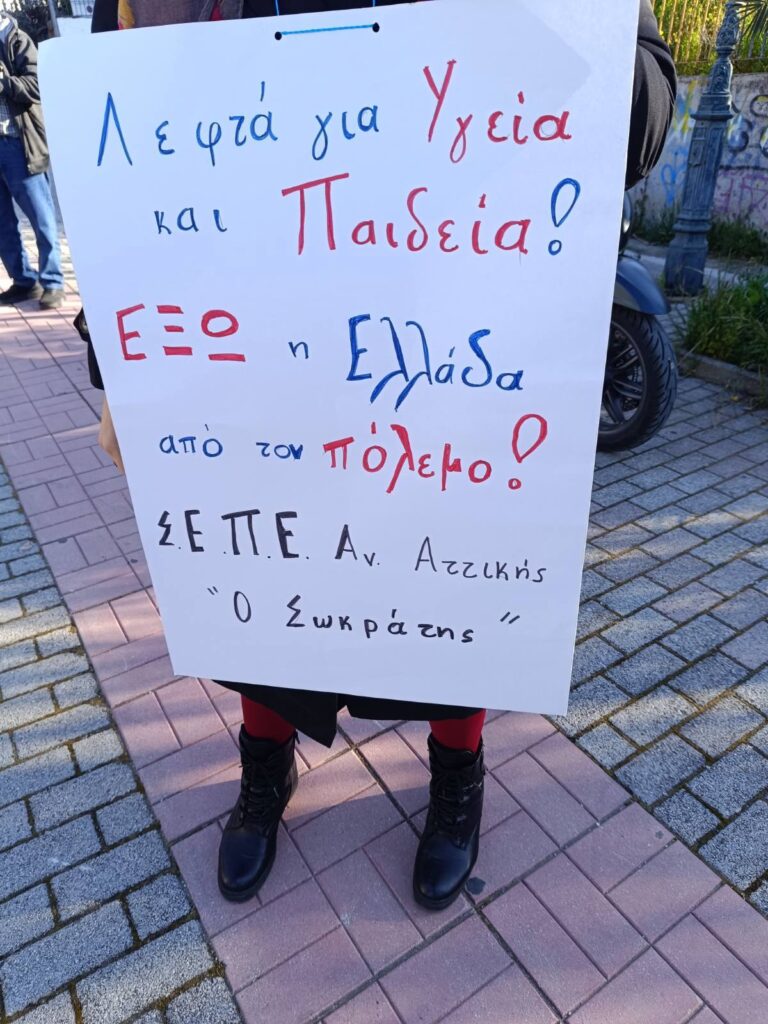 Λεφτά για Υγεία
και Παιδεία!
ΕΞΩ η Ελλάδα
από τον πόλεμο!
Σ.Ε.Π.Ε. Αν. Αττικής
"Ο Σωκράτης"